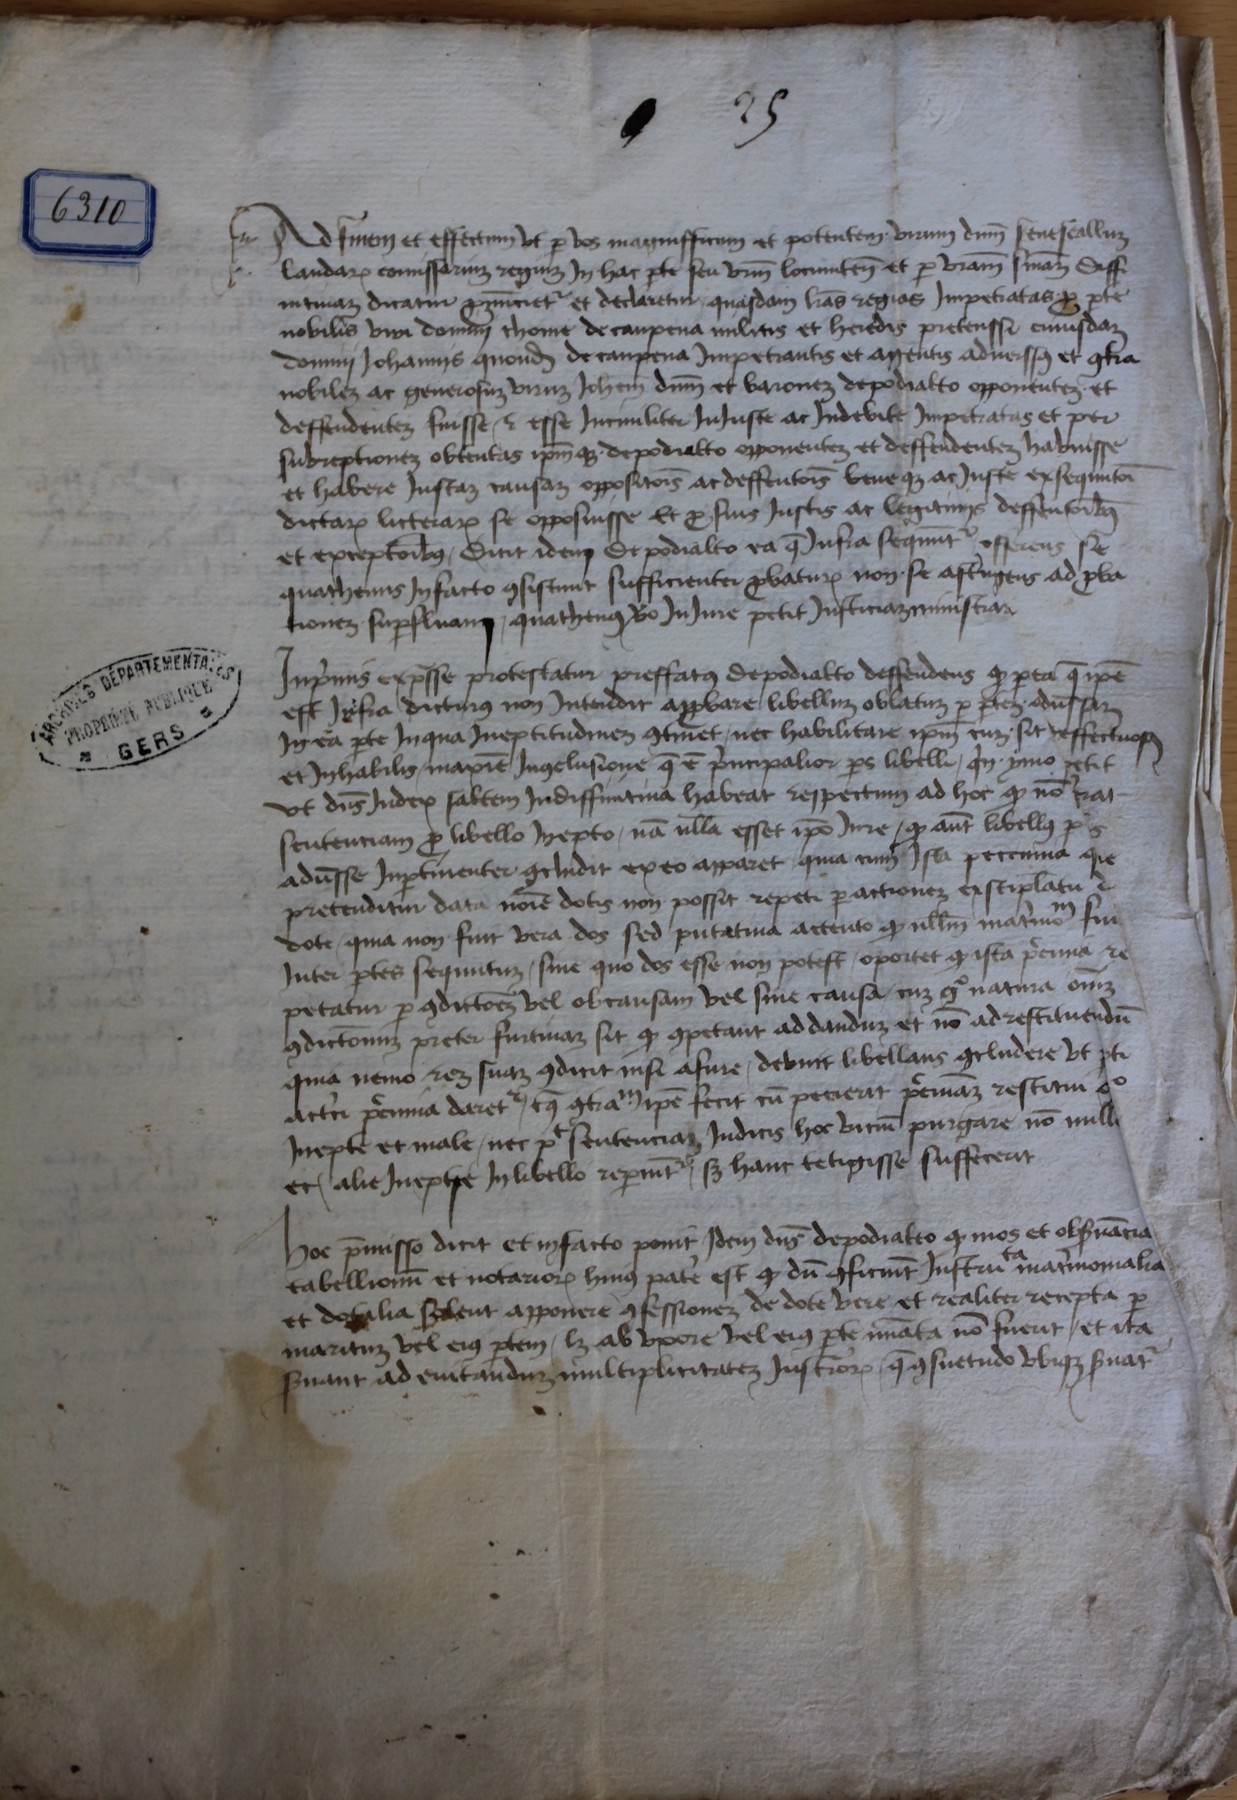 25
6310
Ad finem et effectum ut p vos magnifficum et potentem virum dnm senescallum
landar comissarium regium In hac pte seu vrm locumteñ et p vram smam diffi
nitivam dicatur pnuncietr et declaretur quasdam lras regias Impetratas p pte
nobilis viri domini thome de caupena militis et heredis pretenssi cuiusdam
domini Johannis quondam de caupena Impetrantis et agentis adverssus et gtra
nobilem ac generosum virum Johem dnm et baronem depodialto opponentem et
deffendentem fuisse et esse Inciviliter Injuste ac Indebite Impetratas et per
subreptionem obtentas ipmq depodialto opponentem et deffendentem habuisse
et habere Justam causam oppositois ac deffentois beneq ac Juste exsequutoi
dictar litterar se opposuisse Et p suis Justis ac legitimis deffentoibus
et exceptoibus Dicit idem Depodialto ea q Infra sequntr offerens se
quathenus Infacto gsistunt sufficienter pbatur non se astringens ad pba
tionem supfluam quathenus vo InJure petit Justiciam ministrari
Inprimis expsse protestatur preffatus depodialto deffendens q p ea q ipe
est Infra dicturus non Intendit appbare libellum oblatum p ptem advssam
In ea pte Inqua Ineptitudinem gtinet nec habilitare ipm cum sit deffectuosus
et Inhabilis maxie Inqclusione q e principalior ps libelli qn ymo petit
ut dns Judex saltem Indiffinitiva habeat respectum ad hoc q no ferat
sentenciam p libello Inepto na nulla esset ipo Jure q aut libellus ptis
advsse Inptinenter gcludit ex eo apparet quia cum Ista peccunia que
pretenditur data noie dotis non possit repeti p actionem exstiplatu de
dote quia non fuit vera dos sed putativa attento q nullm matrimom fuit
Inter ptes sequutum sine quo dos esse non potest oportet q ista pecunia re
petatur p gdictoem vel obcausam vel sine causa cum go natura oium
gdictonum preter furtivam sit q gpetant addandum et no adrestituendu
quia nemo rem suam gdicit nisi afure debuit libellans gcludere ut pti
actrici pecunia daretr cuius gtram ipe fecit cu petierat pecuniam restitui Io
Inepte et male nec pt sentenciam Judicis hoc viciu purgare no nulle
et alie Inepthe Inlibello repiuntr sz hanc tetigisse suffecerit
Hoc pmisso dicit et Infacto ponit Idem dns depodialto q mos et obsvancia
tabellionu et notarior huius patrie est q du gficiunt Instruta matrimonialia
et dotalia solent apponere gfessionem de dote vere et realiter recepta p
maritum vel eius ptem lz ab uxore vel eius pte nuata no fuerit et ita
svant ad evitandum multiplicitatem Instror q gsuetudo ubiq svatr
ARCHIVES DÉPARTEMENTALES
PROPRIÉTÉ PUBLIQUE
GERS